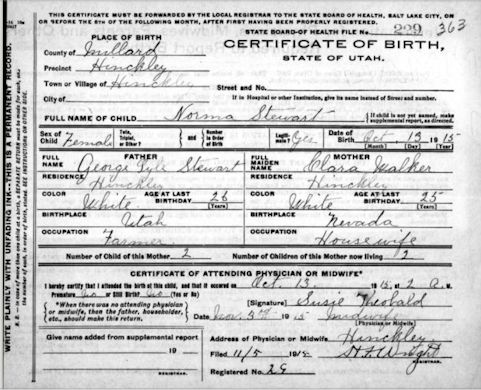 THIS CERTIFICATE MUST BE FORWARDED BY THE LOCAL REGISTRAR TO THE STATE BOARD OF HEALTH, SALT LAKE CITY, ON
OR BEFORE THE 5TH OF THE FOLLOWING MONTH, AFTER FIRST HAVING BEEN PROPERLY REGISTERED.
STATE BOARD OF HEALTH FILE No. 229 363
PLACE OF BIRTH
County of Millard
Precinct Hinckley
Town or Village of Hinckley
City of
CERTIFICATE OF BIRTH,
STATE OF UTAH.
Street and No.
If in Hospital or other Institution, give its name instead of Street and number.
FULL NAME OF CHILD Norma Stewart
If child is not yet named, make supplemental report, as directed.
Sex of Child Female
Twin, Triplet, or Other?
and
Number in Order of Birth
Legitimate? Yes
Date of Birth Oct 13 1915
(Month) (Day) (Year)
FATHER
FULL NAME George Lyle Stewart
RESIDENCE Hinckley
COLOR White AGE AT LAST BIRTHDAY 26 (Years)
BIRTHPLACE Utah
OCCUPATION Farmer
MOTHER
FULL MAIDEN NAME Clara Walker
RESIDENCE Hinckley
COLOR White AGE AT LAST BIRTHDAY 25 (Years)
BIRTHPLACE Nevada
OCCUPATION Housewife
Number of Child of this Mother 2
Number of Children of this Mother now living 2
CERTIFICATE OF ATTENDING PHYSICIAN OR MIDWIFE*
I hereby certify that I attended the birth of this child, and that it occurred on Oct. 13 1915, at 2 a. M.
Premature No or Still Birth? No (Yes or No)
*When there was no attending physician or midwife, then the father, householder, etc., should make this return.
[Signature] Susie Theobald
Date Nov. 5th 1915 midwife
[Physician or Midwife]
Give name added from supplemental report
19
REGISTRAR.
Address of Physician or Midwife Hinckley
Filed 11/5 1915
Wright
REGISTRAR.
Registered No. 29
WRITE PLAINLY WITH UNFADING INK—THIS IS A PERMANENT RECORD.